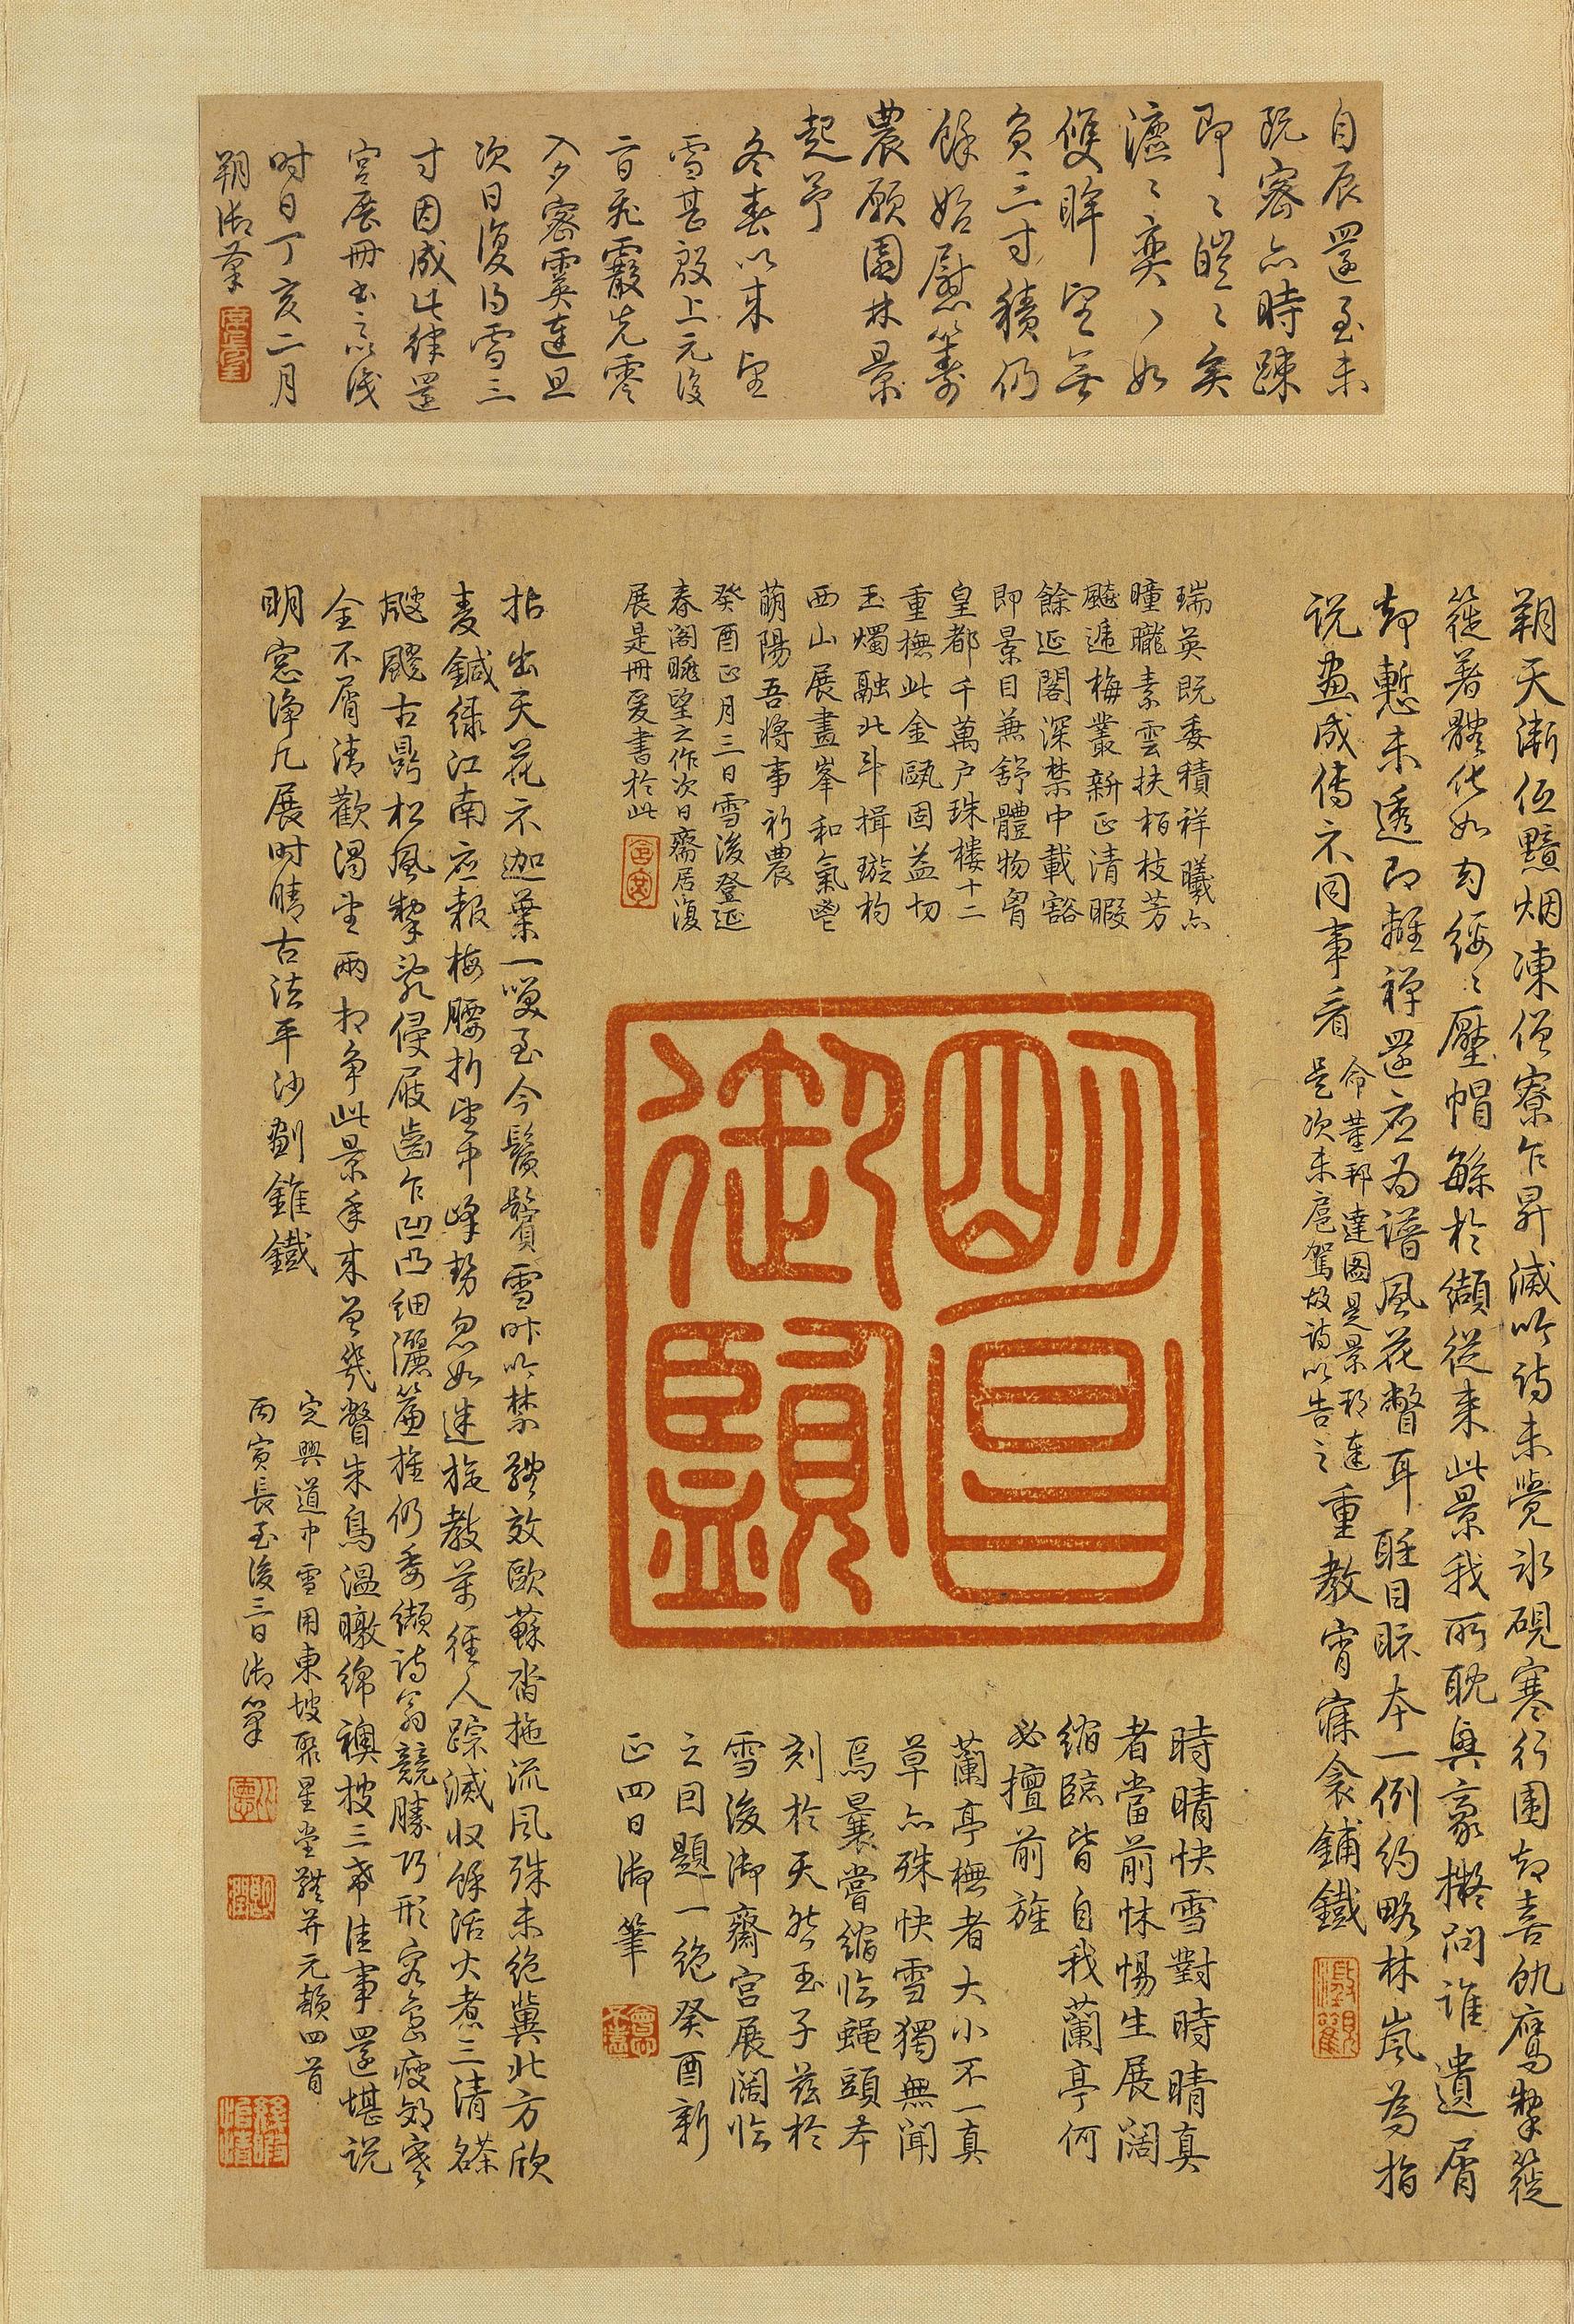 自辰還至未
既密亦時疎
即〻皚〻矣
瀌〻奕〻如
雙眸望無
負三寸積仍
餘始慰籌
農願園林景
起予
冬春以來望
雪甚殷上元後
日飛霰先零
入夕密霙連旦
次日復得雪三
寸因成此律還
宮展冊書以識
時日丁亥二月
朔御筆
朔天漸低黯烟凍僧寮乍昇滅吟詩未覺氷硯寒行圍却喜飢鷹掣簁
簁著體依如勻綏〻壓帽緜於纈從来此景我所耽興豪擬问谁遺屑
却慙未透即離禪還应為譜風花瞥耳聒目眎本一例約略林嵐為指
说畫成傳示同事看
命董邦達圖是景邦達
是次未扈駕故詩以告之
重教宵寐衾鋪鐵
瑞英既委積祥曦亦
曈曨素雲扶栢枝芳
飈遞梅叢新正清暇
餘延閣深禁中載豁
即景目兼舒體物胷
皇都千萬户珠樓十二
重撫此金甌固益切
玉燭融北斗揖璇杓
西山展畫峯和氣鬯
萌陽吾將事祈農
癸酉正月三日雪後登延
春閣眺望之作次日齋居復
展是冊爰書於此
明昌
御覽
時晴快雪對時晴真
者當前怵惕生展闊
縮臨皆自我蘭亭何
必擅前旌
蘭亭撫者大小不一真
草亦殊快雪獨無聞
焉曩嘗縮臨蝇頭本
刻於天然玉子茲於
雪後御齋宮展闊臨
之因題一绝癸酉新
正四日御筆
拈出天花示迦葉一笑至今鬢鬢雪昨吟禁體效歐蘇沓拖流風殊未绝冀北方欣
麦鍼緑江南应報梅腰折望中峰势忽如迷旋教萬径人踪滅収餘活火煮三清名茶
颼飀古鼎松風掣乱侵屐齒乍凹凸細灑簾旌仍委纈詩翁競勝巧形容島瘦郊寒
全不屑清歡渴望兩相争此景年来曾幾瞥朱鳥温暾綿襖披三希佳事還堪说
明窓淨几展时晴古法平沙劃錐鐵
定興道中雪用東坡聚星堂體并元韻四首
丙寅長至後三日御筆